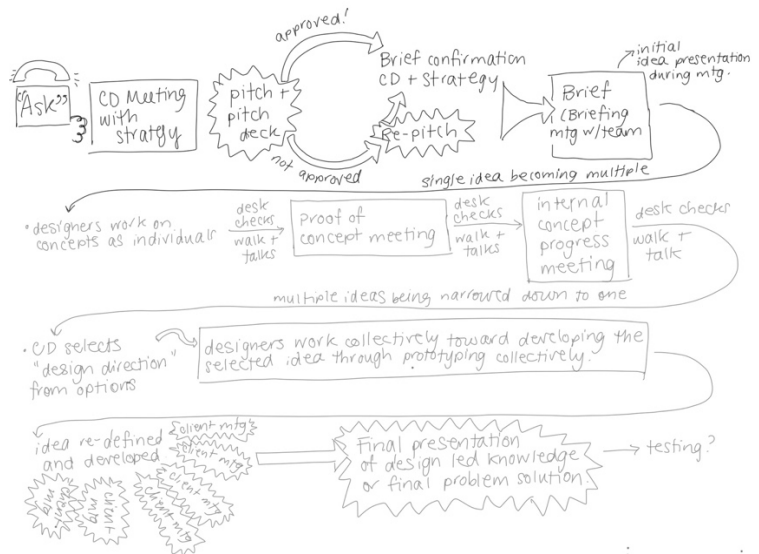 "Ask"
CD Meeting
with
stratgy
pitch +
pitch
deck
approved!
not approved
Re-pitch
Brief confirmation
CD + strategy
Brief
(Briefing
mtg w/team
initial
idea presentation
during mtg.
single idea becoming multiple
• designers work on
concepts as individuals
desk
checks
walk +
talks
proof of
concept meeting
desk
checks
walk +
talks
internal
concept
progress
meeting
desk checks
walk +
talk
multiple ideas being narrowed down to one
• CD selects
"design direction"
from options
designers work collectively toward developing the
selected idea through prototyping collectively.
idea re-defined
and developed
client mtg
client mtg
client mtg
client mtg
client
mtg
client
mtg
Final presentation
of design led knowledge
or final problem solution
testing?